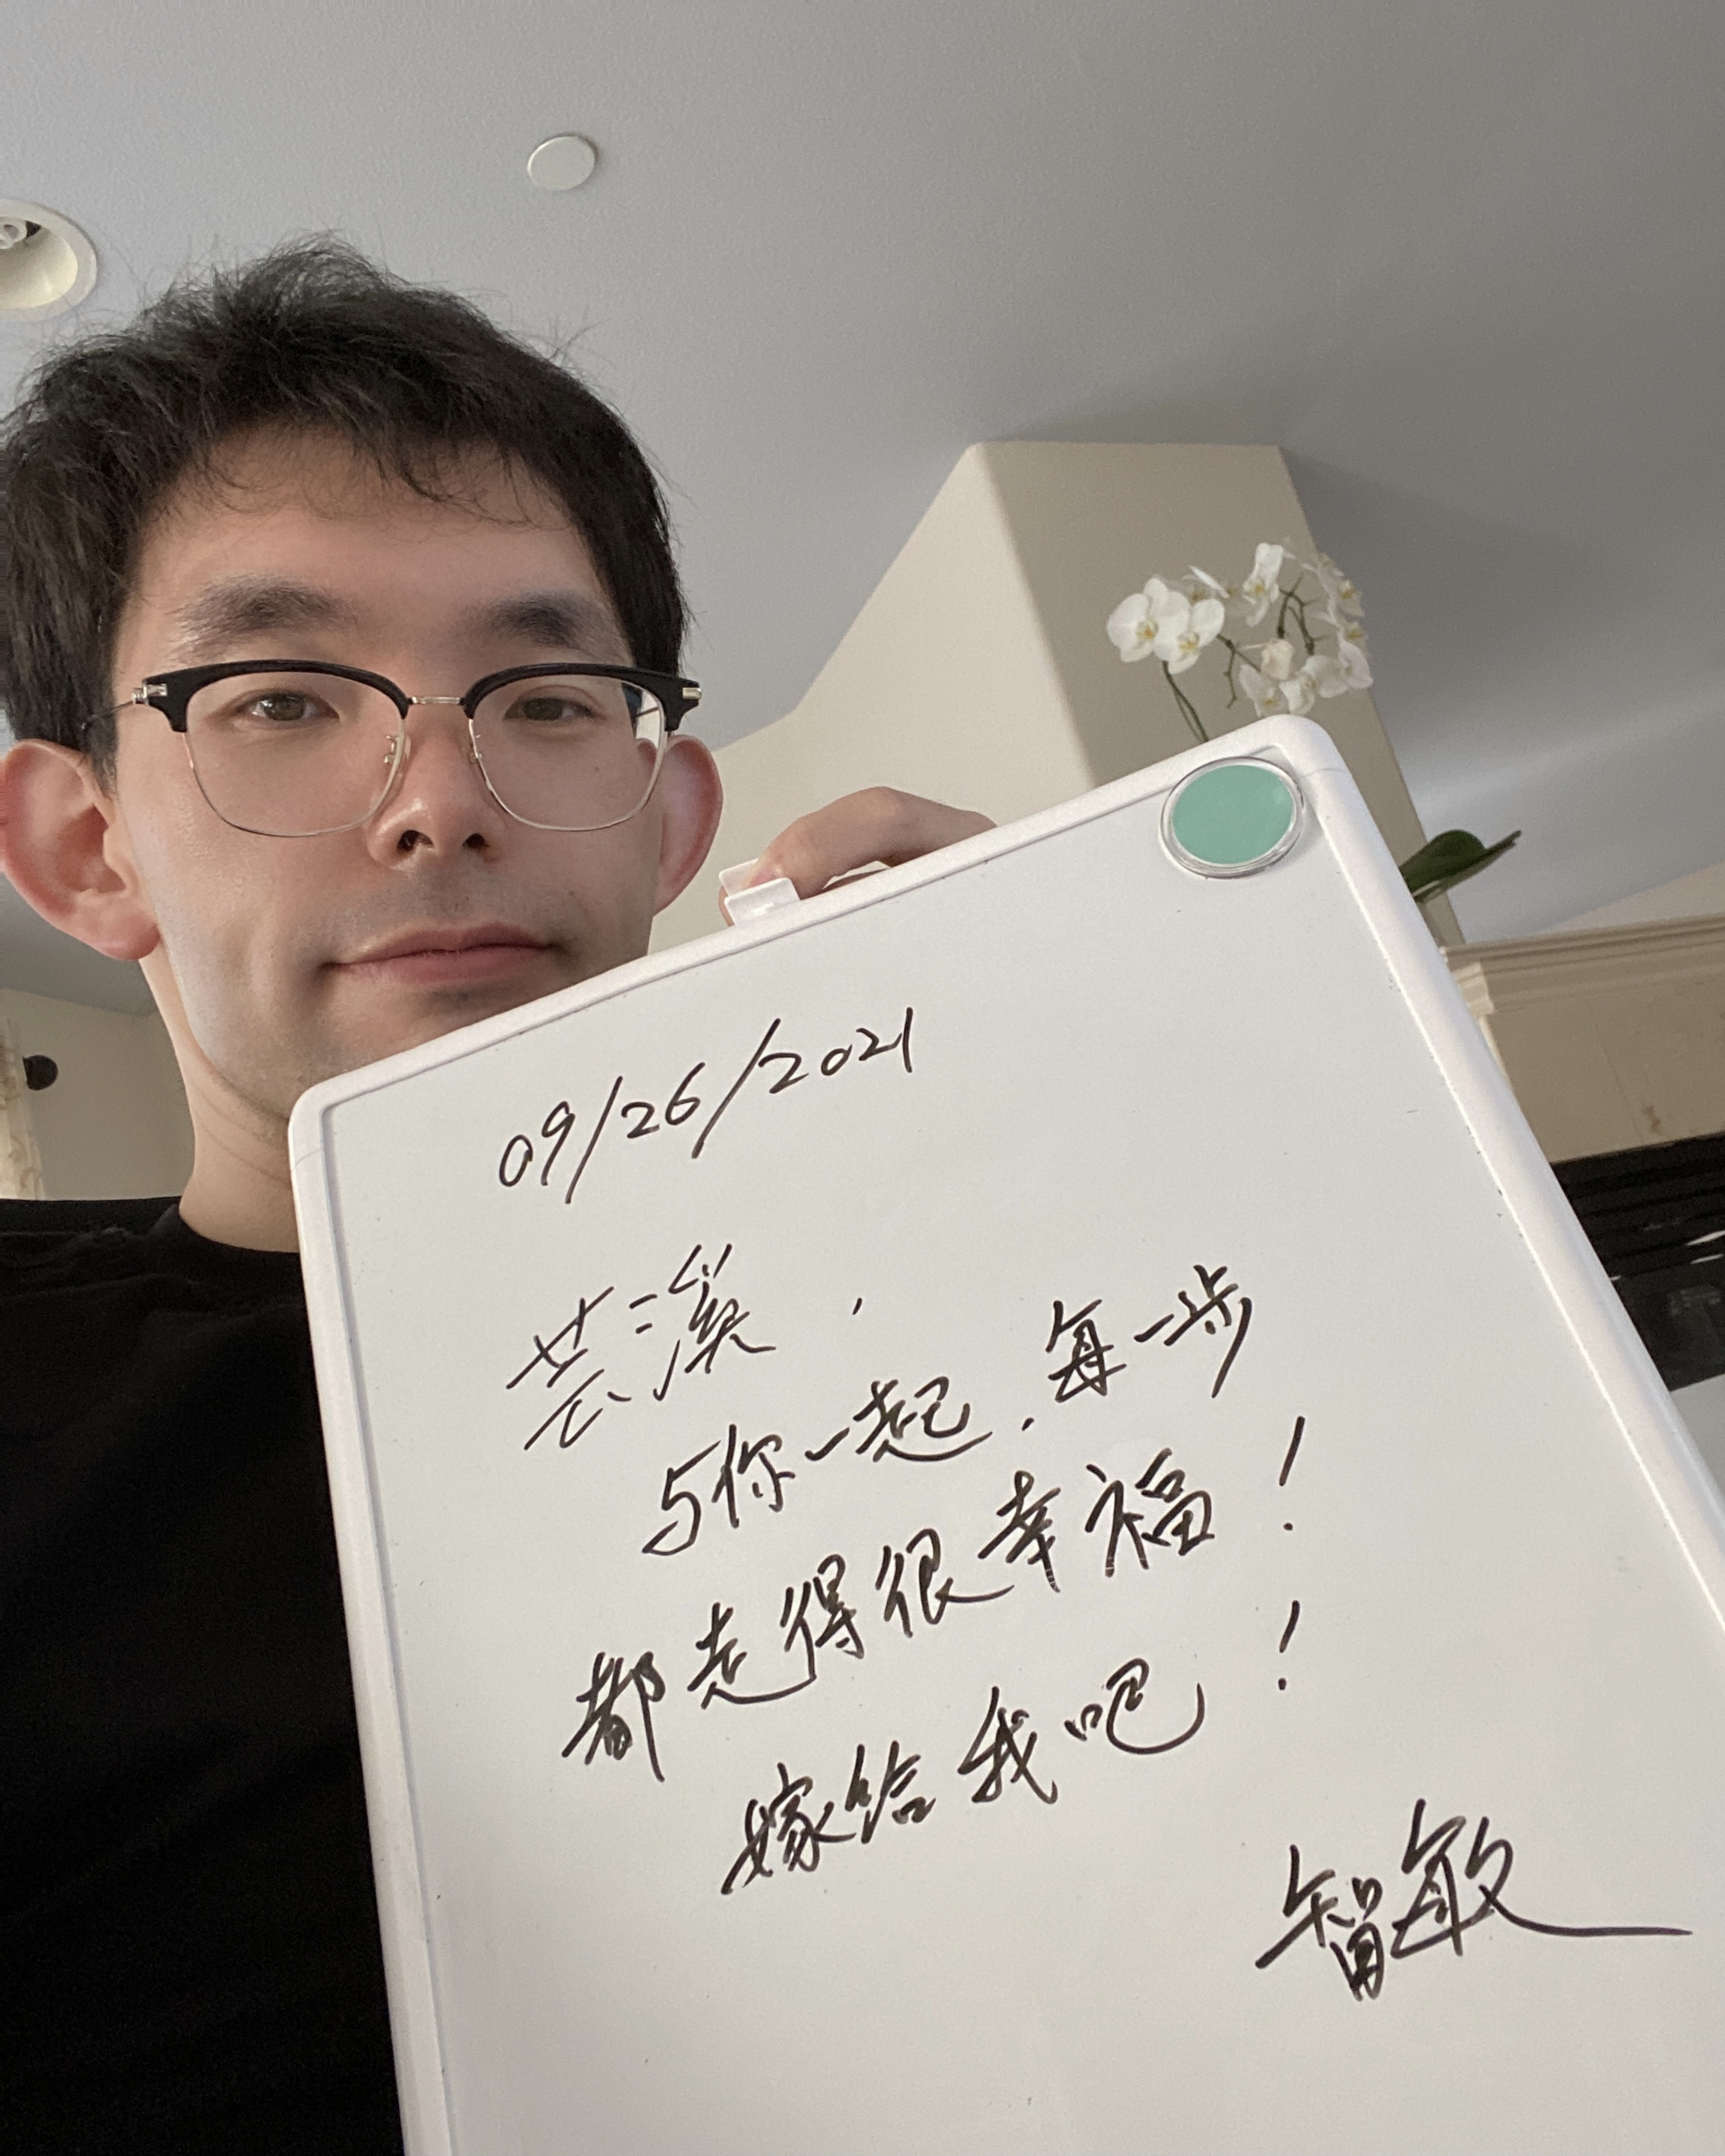 09/26/2021
芸溪，
与你一起，每一步
都走得很幸福！
嫁给我吧！
智敏